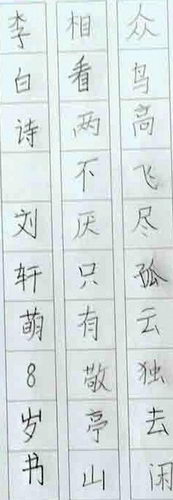 众鸟高飞尽孤云独去闲
相看两不厌只有敬亭山
李白诗 刘轩萌8岁书